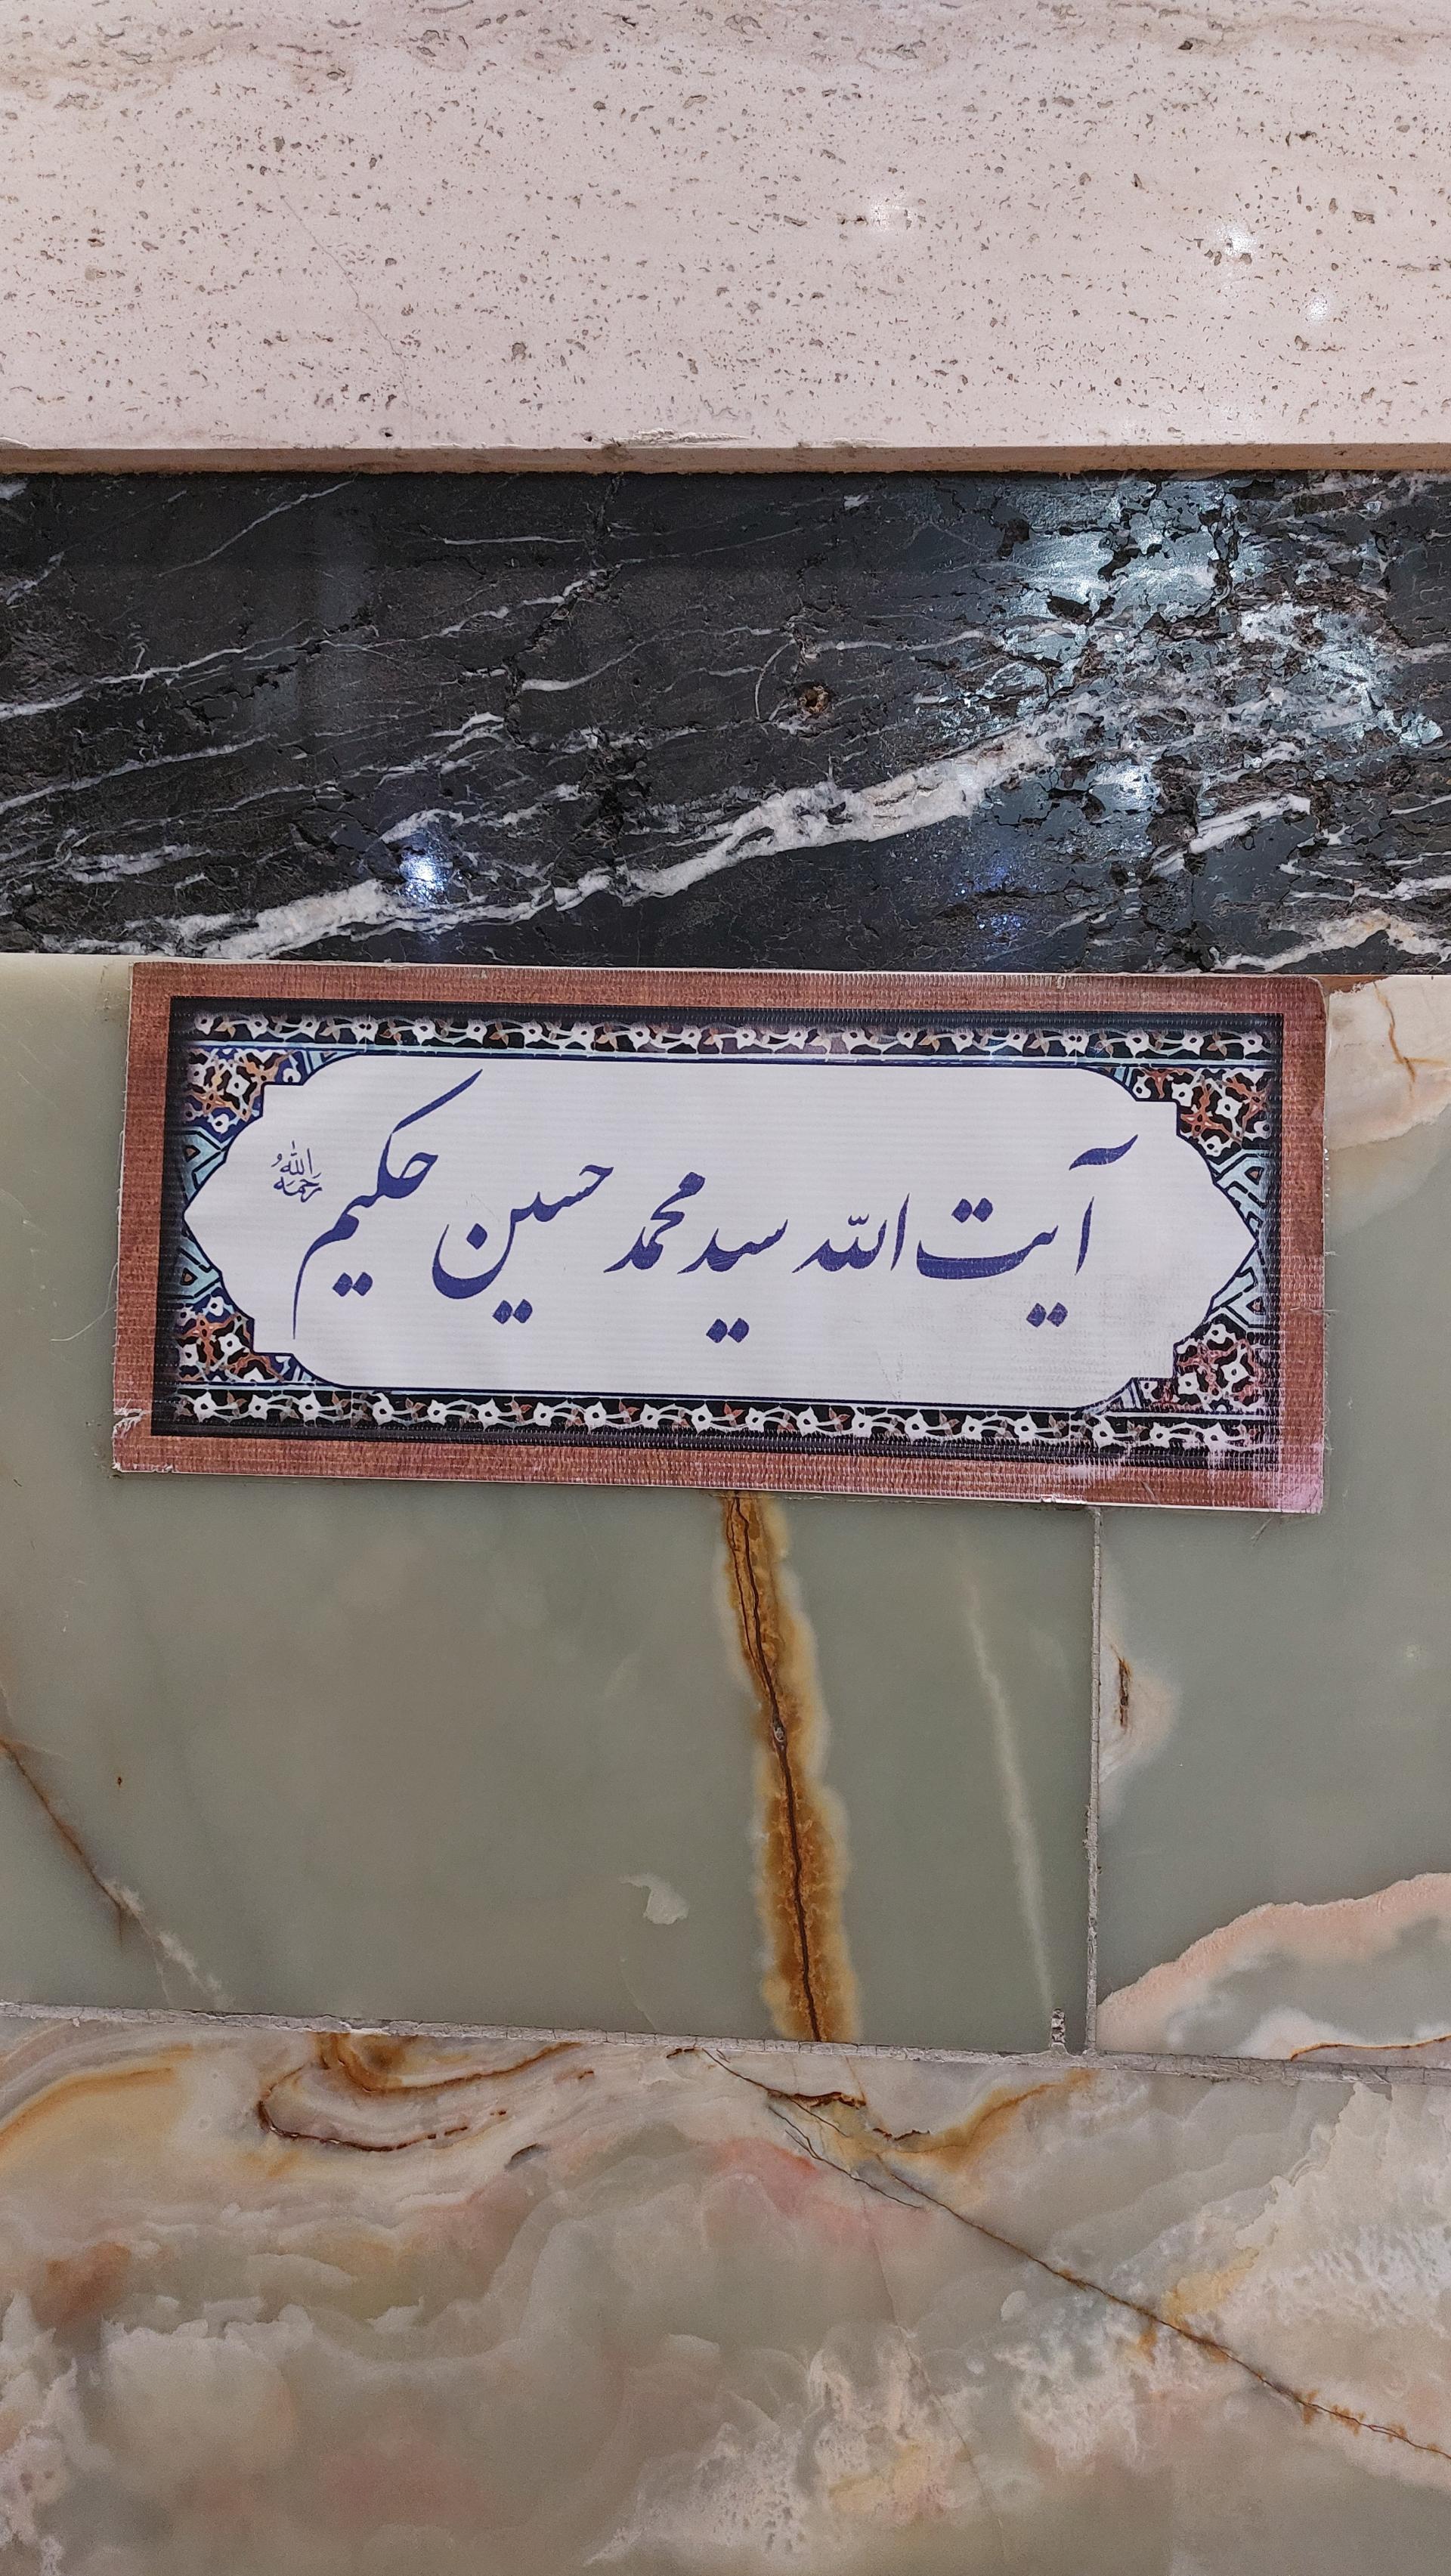 آیت الله سید محمد حسین حکیم رحمه الله